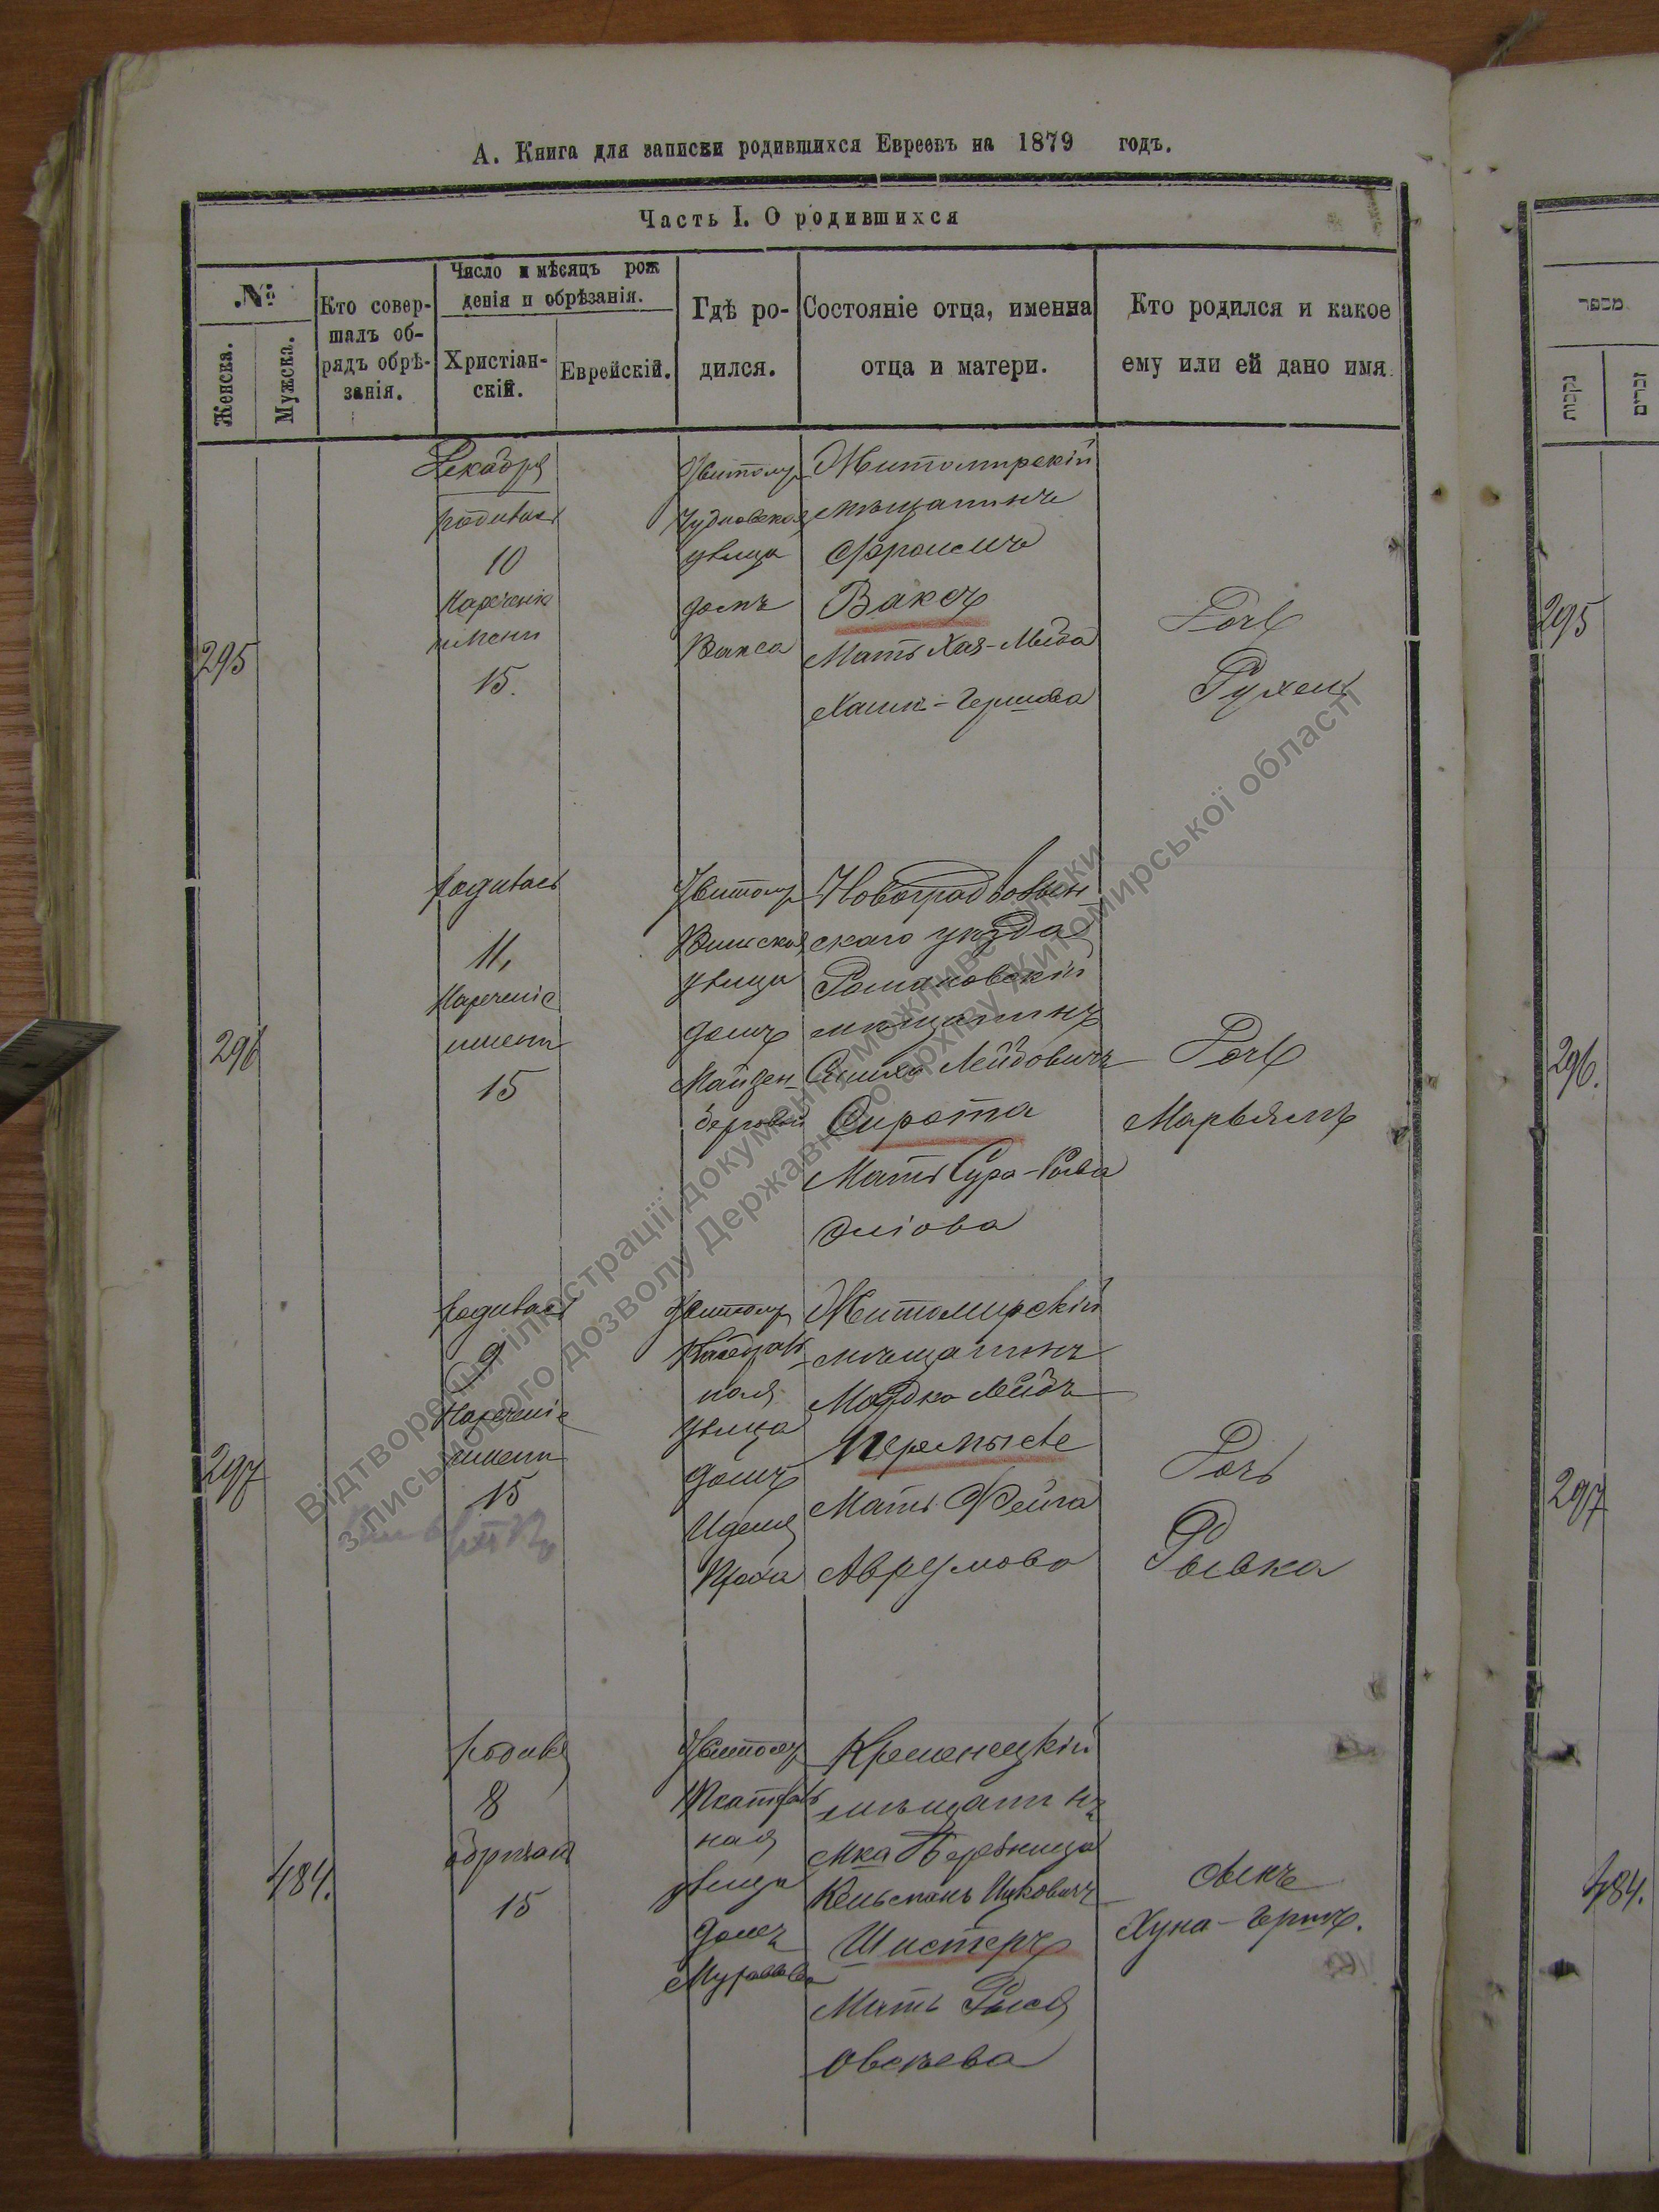 А. Книга для записки родившихся Евреевъ на 1879 годъ.
Часть I. О родившихся
№
Женска.
Мужска.
Кто совер-
шалъ об-
рядъ обрѣ-
занія.
Число и мѣсяцъ рож
денія и обрѣзанія.
Христіан-
скій.
Еврейскій.
Гдѣ ро-
дился.
Состояніе отца, именна
отца и матери.
Кто родился и какое
ему или ей дано имя.
295
Декабря
родилась
10
Нареченіе
имени
15.
Житомир
Чудновская
улица
домъ
Вакса
Житомирскій
мѣщанинъ
Фроимъ
Ваксъ
Мать Хая-Мейда
Хаим-Гершова
Дочь
Рухель
296
родилась
11,
Нареченіе
имени
15
Житомир
Вильская
улица
домъ
Майзен-
берговой
Новоградволын
скаго уѣзда
Романовскій
мѣщанинъ
Симха Лейбовичъ
Сирота
Мать Сура-Рива
Эліова
Дочь
Марьямъ
297
родилась
9
Нареченіе
имени
15
Житомир
Кафедраль
ная
улица
домъ
Житомирскій
мѣщанинъ
Мордко Лейбъ
Перемысле
Мать Фейга
Аврумова
Дочь
Рывка
484.
родился
8
обрѣзан
15
Житомир
ная
улица
домъ
Кременецкій
мѣщанинъ
мка Бережница
Кельманъ Ицковичъ
Шистеръ
Мать Рыся
Овсѣева
сынъ
Хуна-Гершъ.
מספר
נקבות
זכרים
295
296.
297
484.
Відтворення ілюстрації документу можливе тільки
з письмового дозволу Державного архіву Житомирської області